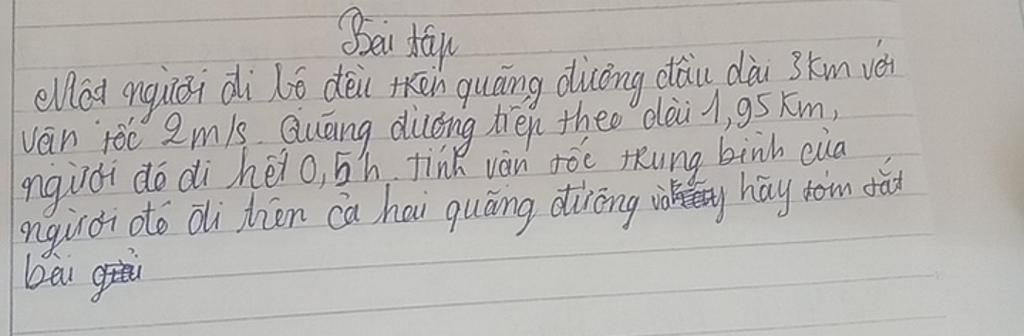 Bài tập
Một người đi bộ đều trên quãng đường đầu dài 3km với
vận tốc 2m/s. Quãng đường tiếp theo dài 1,95km,
người đó đi hết 0,5h. Tính vận tốc trung bình của
người đó đi trên cả hai quãng đường và hãy tóm tắt
bài